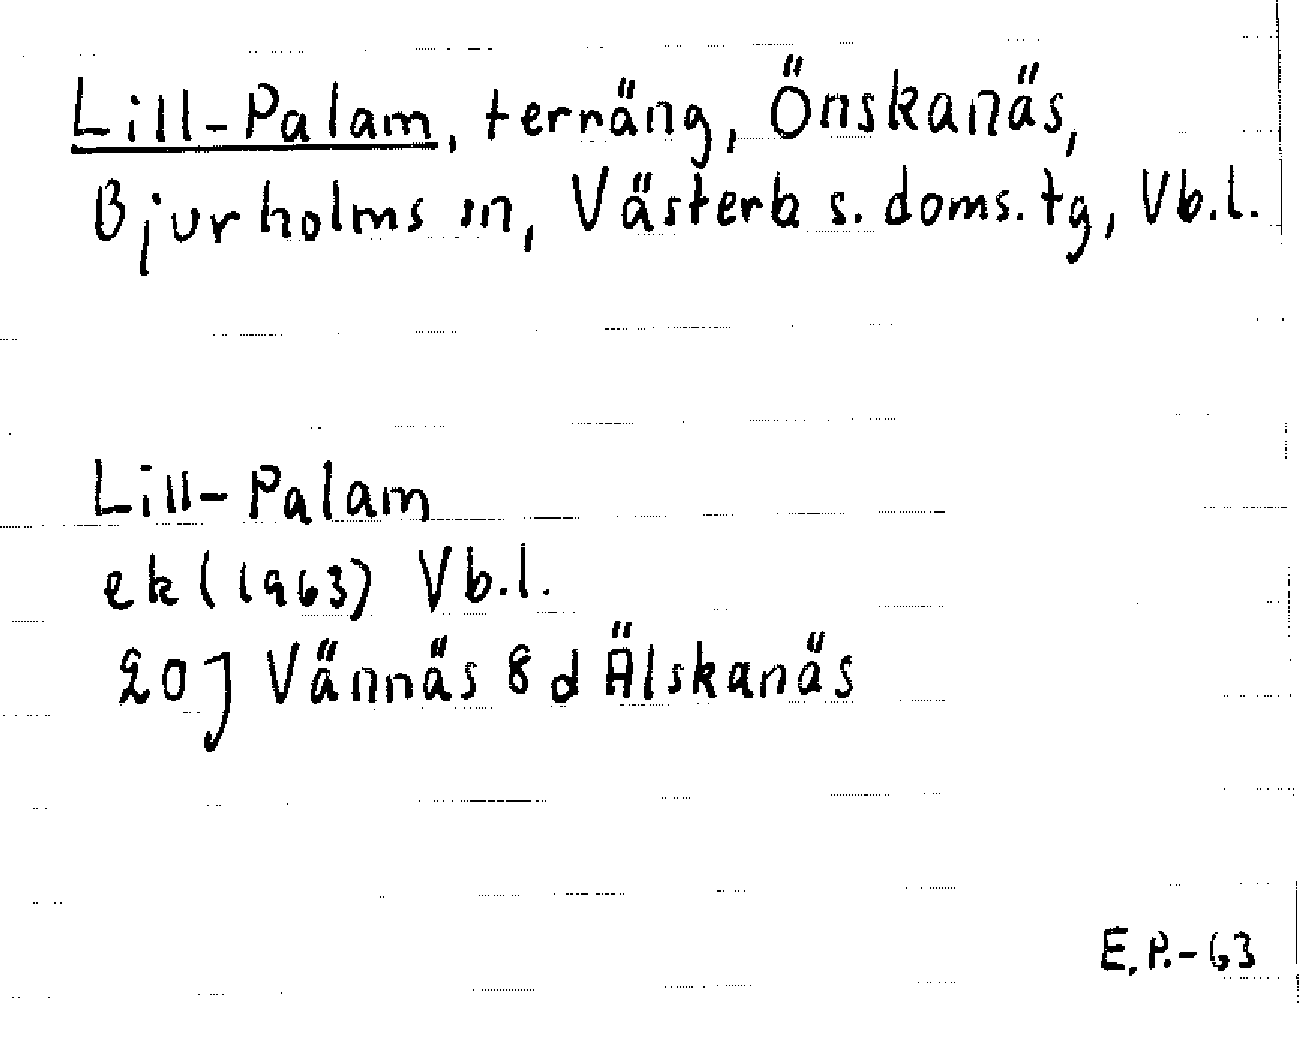 Lill-Palam, terräng, Önskanäs,
Bjurholms sn, Västerb s. doms. tg, Vb.l.
Lill-Palam
ek (1963) Vb.l.
20J Vännäs 8d Älskanäs
E.P.-63